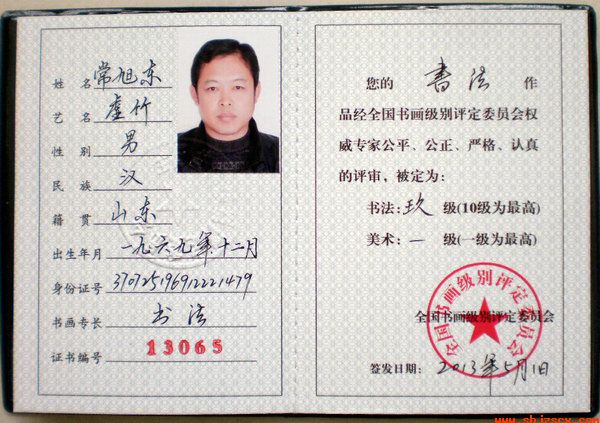 姓 名 常旭东
艺 名 虚竹
性 别 男
民 族 汉
籍 贯 山东
出生年月 一九六九年十二月
身份证号 370725196912221479
书画专长 书法
证书编号 13065
您的 书法 作
品经全国书画级别评定委员会权
威专家公平、公正、严格、认真
的评审，被定为：
书法：玖 级(10级为最高)
美术：一 级(一级为最高)
全国书画级别评定委员会
全国书画级别评定委员会
签发日期：2013年5月1日